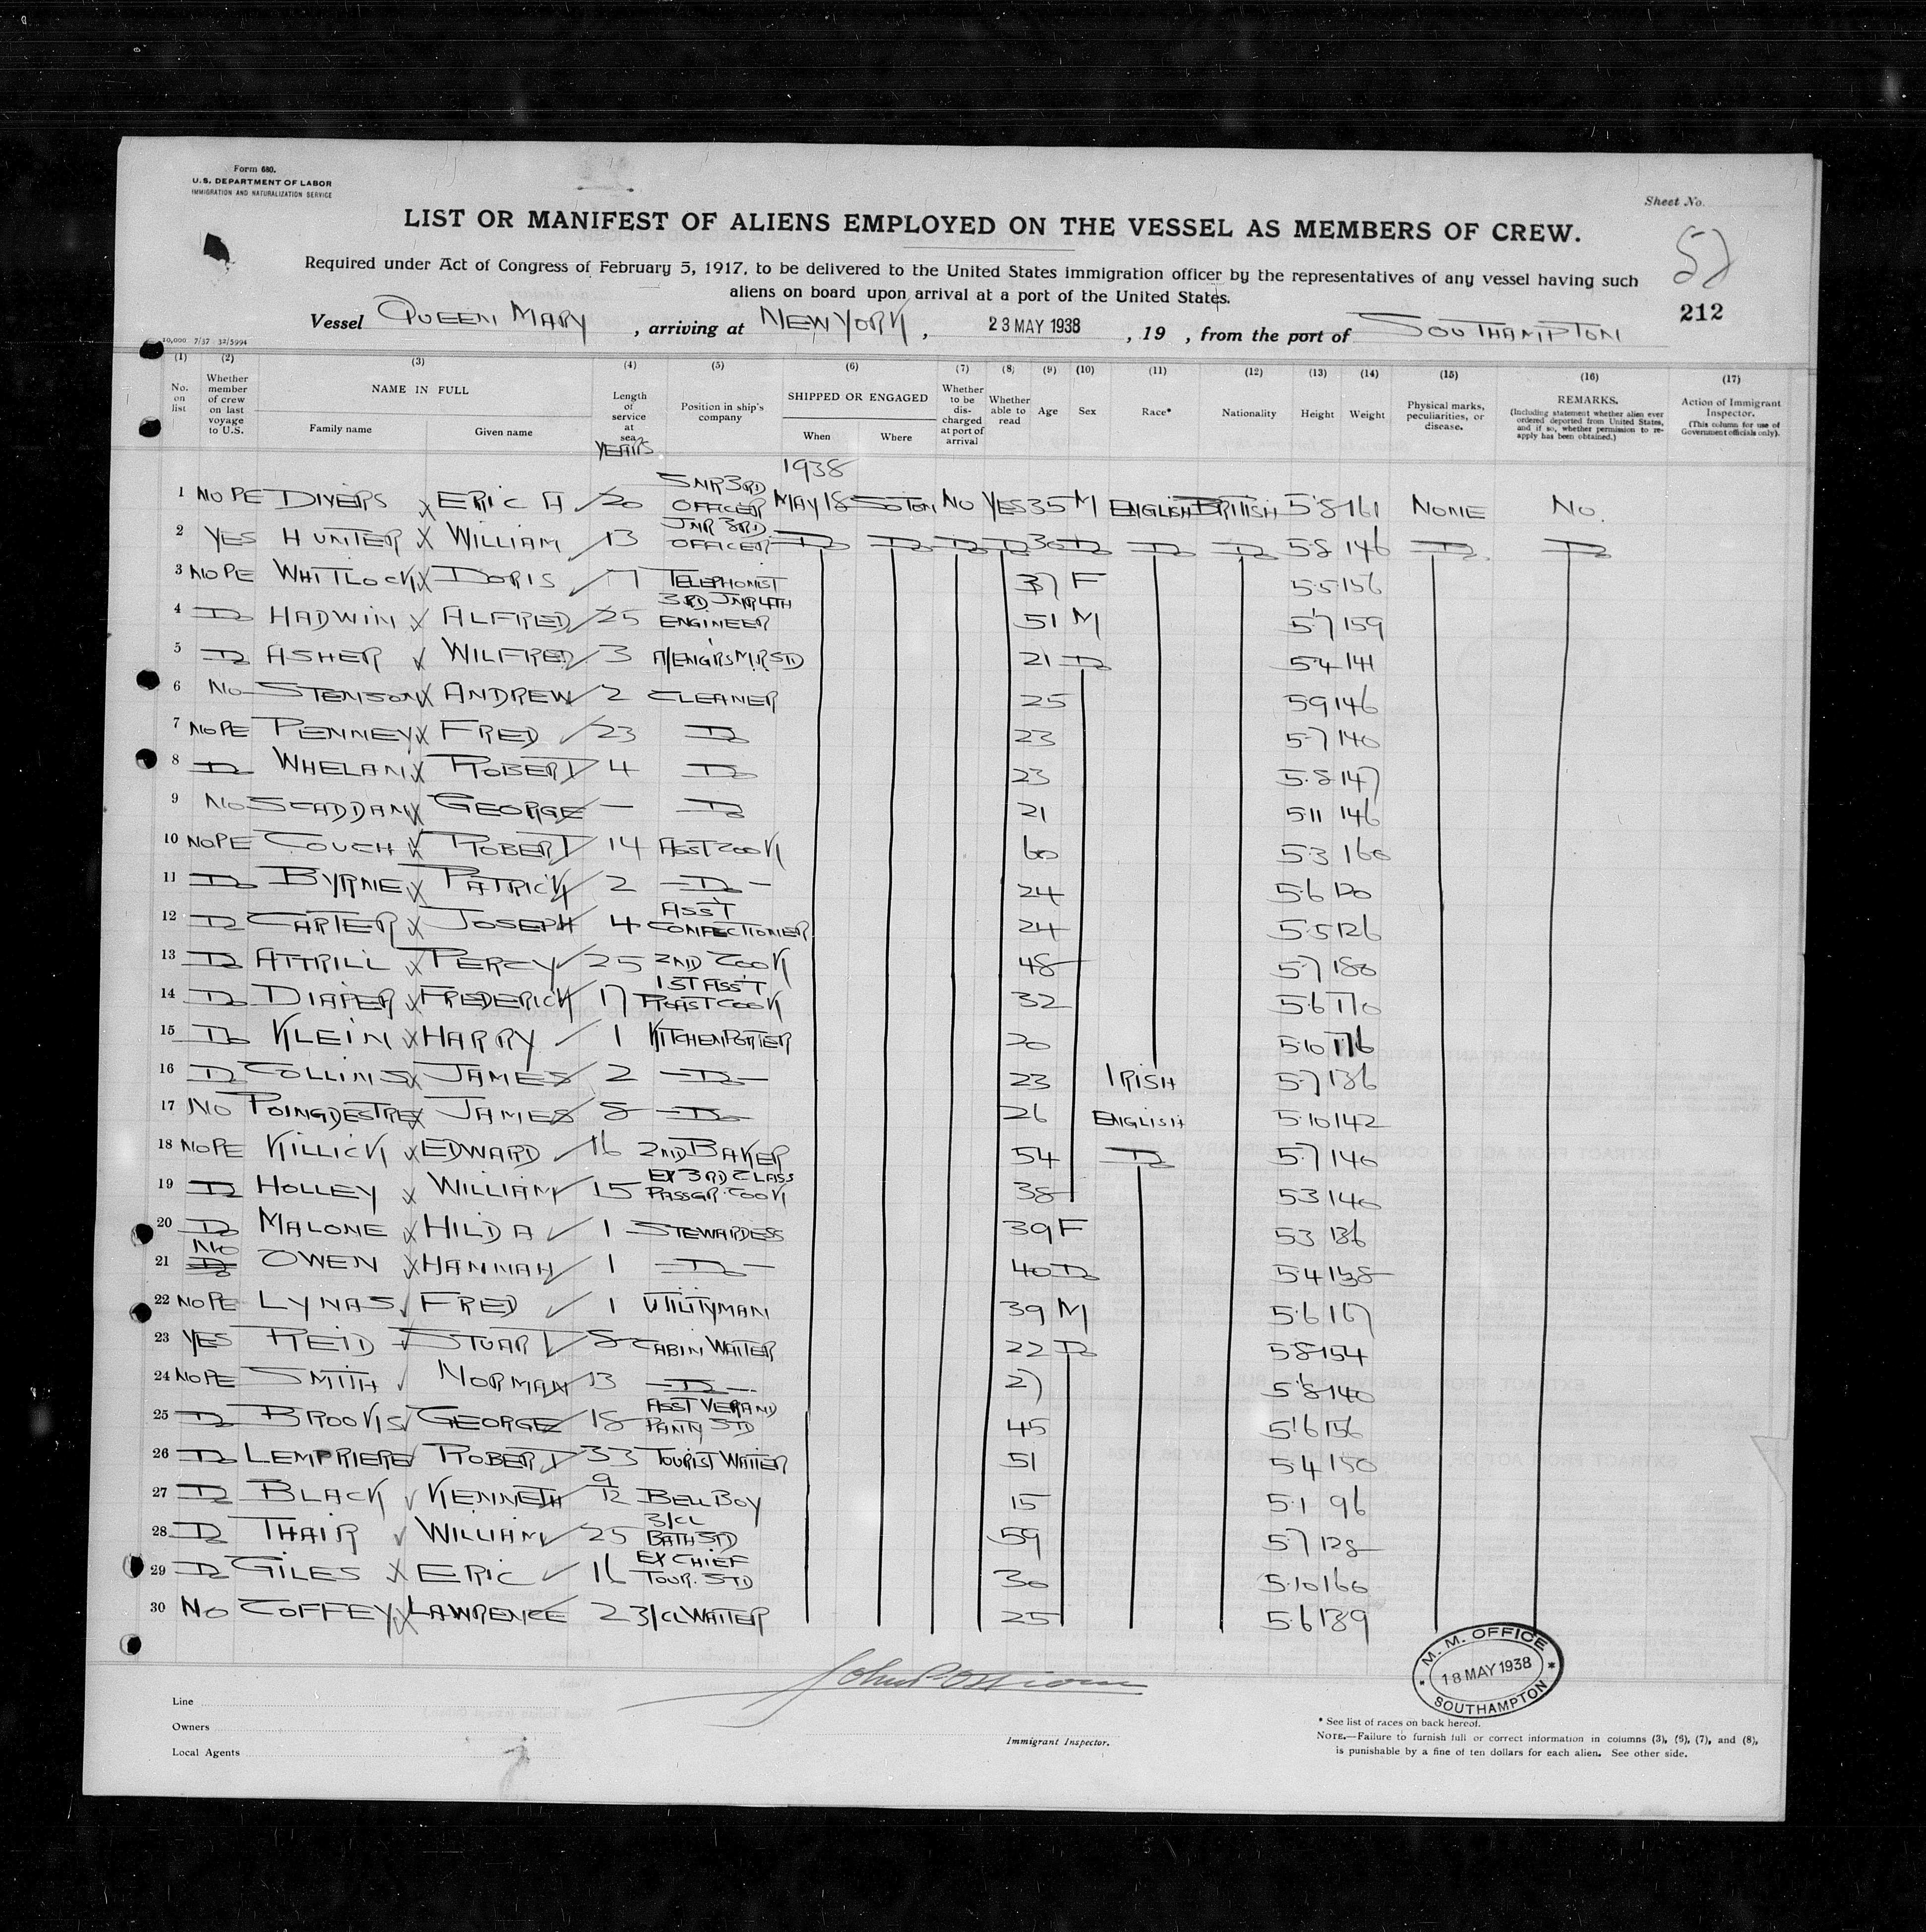 Form 680.
U.S. DEPARTMENT OF LABOR
IMMIGRATION AND NATURALIZATION SERVICE
Sheet No.
LIST OR MANIFEST OF ALIENS EMPLOYED ON THE VESSEL AS MEMBERS OF CREW.
Required under Act of Congress of February 5, 1917, to be delivered to the United States immigration officer by the representatives of any vessel having such
aliens on board upon arrival at a port of the United States.
212
Vessel QUEEN MARY, arriving at NEW YORK, 23 MAY 1938, 19 , from the port of SOUTHAMPTON
10,000 7/37 32/5994
(1) (2) (3) (4) (5) (6) (7) (8) (9) (10) (11) (12) (13) (14) (15) (16) (17)
No. on list
Whether member of crew on last voyage to U.S.
NAME IN FULL
Family name Given name
Length of service at sea
YEARS
Position in ship's company
SHIPPED OR ENGAGED
When Where
Whether to be discharged at port of arrival
Whether able to read
Age Sex Race* Nationality Height Weight
Physical marks, peculiarities, or disease.
REMARKS.
(Including statement whether alien ever ordered deported from United States, and if so, whether permission to reapply has been obtained.)
Action of Immigrant Inspector.
(This column for use of Government officials only).
1938
1 NOPE DIVERS x ERIC H 20 SNR 3RD OFFICER MAY 18 SOTON NO YES 35 M ENGLISH BRITISH 5'8 161 NONE NO.
2 YES HUNTER x WILLIAM 13 JNR 3RD OFFICER Do Do Do Do 30 Do Do Do 5'8 146 Do Do
3 NOPE WHITLOCK x DORIS TELEPHONIST 37 F 5.5 156
4 Do HADWIN x ALFRED 25 3RD JNR 4TH ENGINEER 51 M 5'7 159
5 Do ASHER x WILFRED 3 A/ENGRS M.R.STD 21 Do 5'4 141
6 NO STENSON x ANDREW 2 CLEANER 25 5'9 146
7 NOPE PENNEY x FRED 23 Do 23 5.7 140
8 Do WHELAN x ROBERT 4 Do 23 5.8 147
9 NO SCADDAN x GEORGE — Do 21 5.11 146
10 NOPE COUCH x ROBERT 14 ASST COOK 60 5.3 160
11 Do BYRNE x PATRICK 2 Do 24 5.6 120
12 Do CARTER x JOSEPH 4 ASS'T CONFECTIONER 24 5.5 126
13 Do ATTRILL x PERCY 25 2ND COOK 48 5.7 188
14 Do DIAPER x FREDERICK 17 1ST ASS'T ROAST COOK 32 5.6 170
15 Do KLEIN x HARRY 1 KITCHEN PORTER 20 5.10 176
16 Do COLLINS x JAMES 2 Do 23 IRISH 5.7 136
17 NO POINGDESTRE x JAMES 8 Do 26 ENGLISH 5.10 142
18 NOPE KILLICK x EDWARD 16 2ND BAKER 54 Do 5.7 140
19 Do HOLLEY x WILLIAM 15 EX 3RD CLASS PASSGR. COOK 38 5.3 140
20 Do MALONE x HILDA 1 STEWARDESS 39 F 5.3 136
21 NO OWEN x HANNAH 1 Do 40 Do 5.4 138
22 NOPE LYNAS FRED 1 UTILITYMAN 39 M 5.6 167
23 YES REID STUART 8 CABIN WAITER 22 Do 5.8 154
24 NOPE SMITH NORMAN 13 Do 27 5'8 140
25 Do BROOKS GEORGE 18 ASST VERAND PANTY STD 45 5'6 156
26 Do LEMPRIERE ROBERT 33 TOURIST WAITER 51 5.4 150
27 Do BLACK KENNETH 9/12 BELL BOY 15 5.1 96
28 Do THAIR WILLIAM 25 3/CL BATH STD 59 5.7 128
29 Do GILES x ERIC 16 EX CHIEF TOUR. STD 30 5.10 160
30 NO COFFEY x LAWRENCE 2 3/CL WAITER 25 5.6 139
M. M. OFFICE
18 MAY 1938
SOUTHAMPTON
Line
Owners
Local Agents
Immigrant Inspector.
* See list of races on back hereof.
NOTE.—Failure to furnish full or correct information in columns (3), (6), (7), and (8),
is punishable by a fine of ten dollars for each alien. See other side.